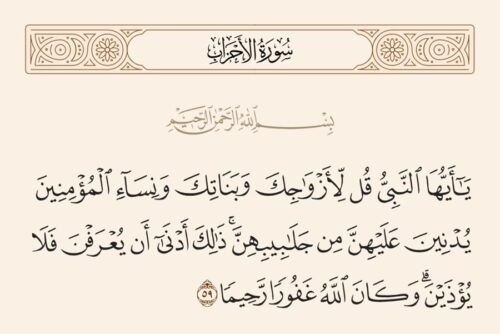 سُورَةُ الأَحْزَابِ
بِسْمِ اللَّهِ الرَّحْمَٰنِ الرَّحِيمِ
يَـٰٓأَيُّهَا ٱلنَّبِىُّ قُل لِّأَزْوَٰجِكَ وَبَنَاتِكَ وَنِسَآءِ ٱلْمُؤْمِنِينَ
يُدْنِينَ عَلَيْهِنَّ مِن جَلَـٰبِيبِهِنَّ ۚ ذَٰلِكَ أَدْنَىٰٓ أَن يُعْرَفْنَ فَلَا
يُؤْذَيْنَ ۗ وَكَانَ ٱللَّهُ غَفُورًا رَّحِيمًا ٥٩